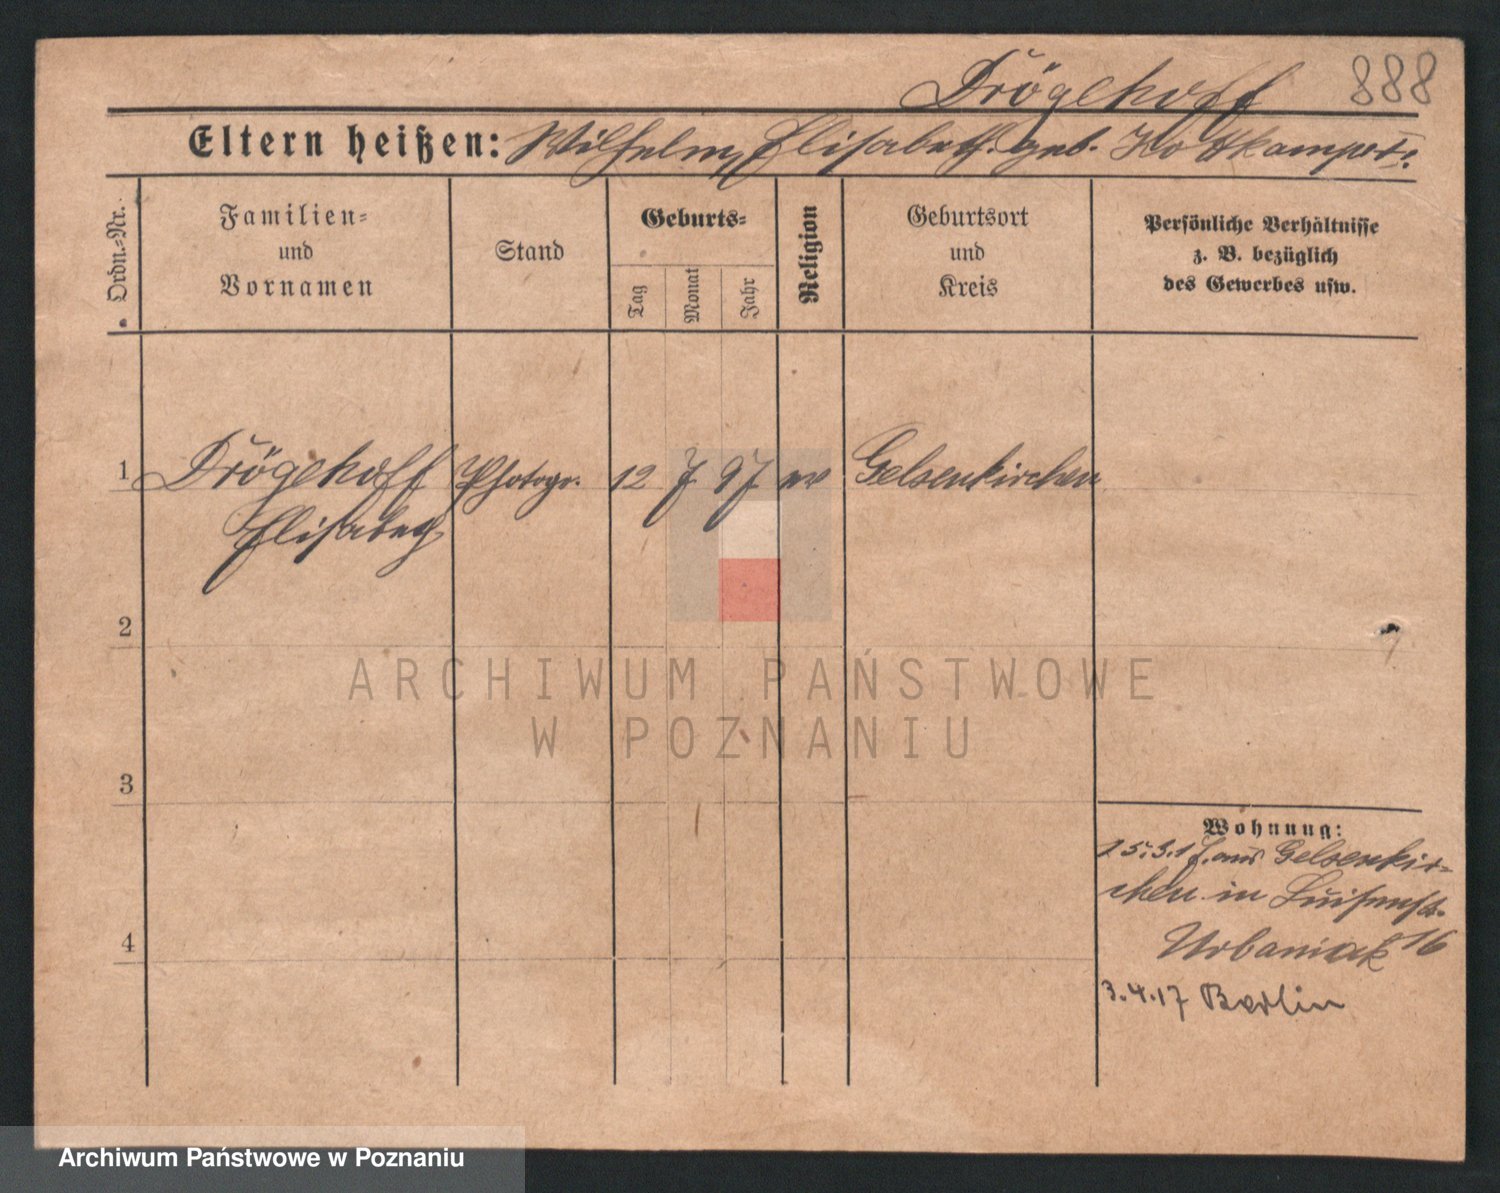 Drögehoff 888
Eltern heißen: Wilhelm, Elisabeth geb.
Ordn.=Nr.
Familien=
und
Vornamen
Stand
Geburts=
Tag
Monat
Jahr
Religion
Geburtsort
und
Kreis
Persönliche Verhältnisse
z. B. bezüglich
des Gewerbes usw.
1 Drögehoff Photogr. 12 7 97 ev Gelsenkirchen
Elisabeth
2
3
4
Wohnung:
25.3.17. aus Gelsenkir=
chen in Luisenst.
Urbaniak 16
3.4.17 Berlin
ARCHIWUM PAŃSTWOWE
W POZNANIU
Archiwum Państwowe w Poznaniu